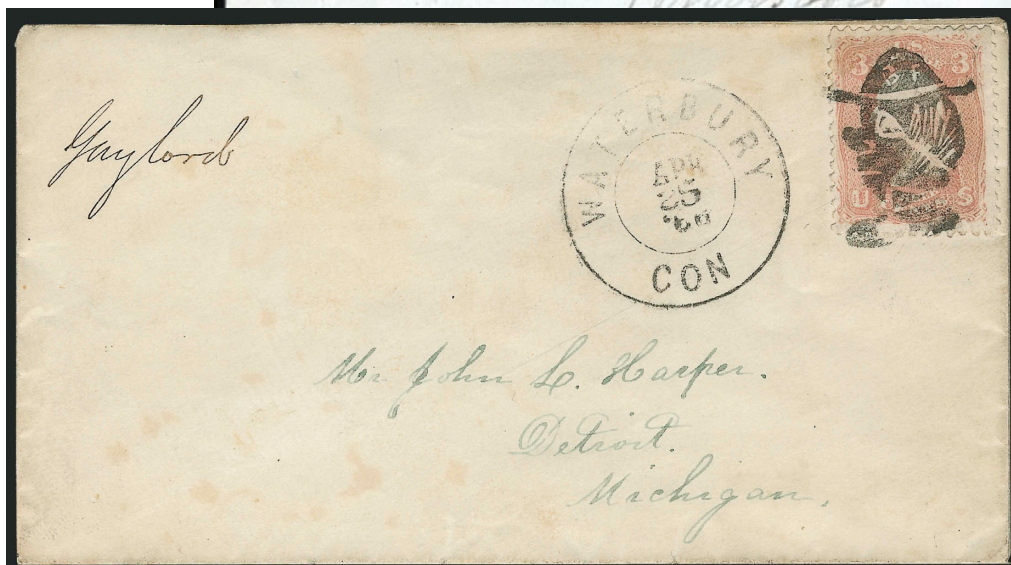 Gaylord
WATERBURY
APR
CON
3 3
U S
Mr John L. Harper.
Detroit.
Michigan.